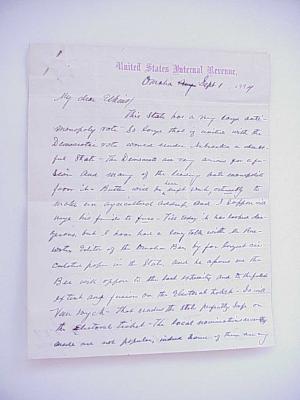 United States Internal Revenue,
Omaha Sept 1, 1884
My dear Elkins
This State has a very large anti-
monopoly vote. So large that if united with the
Democratic vote would render Nebraska a doubt-
ful State - The Democrats are very anxious for a fu-
sion and many of the leading anti monopolists
favor it - Butler will be in
make an agricultural address, and I
urge his friends to fuse - Till today it has looked dan-
gerous, but I have had a long talk with Mr Rose-
water Editor of the Omaha Bee by far largest cir-
culation paper in the State, and he assures me the
Bee will oppose to the last extremity and to the fullest
extent any fusion on the Electoral ticket - So will
Van Wyck - That renders the State perfectly safe on
the Electoral ticket - The local nominations recently
made are not popular, indeed some of them are very